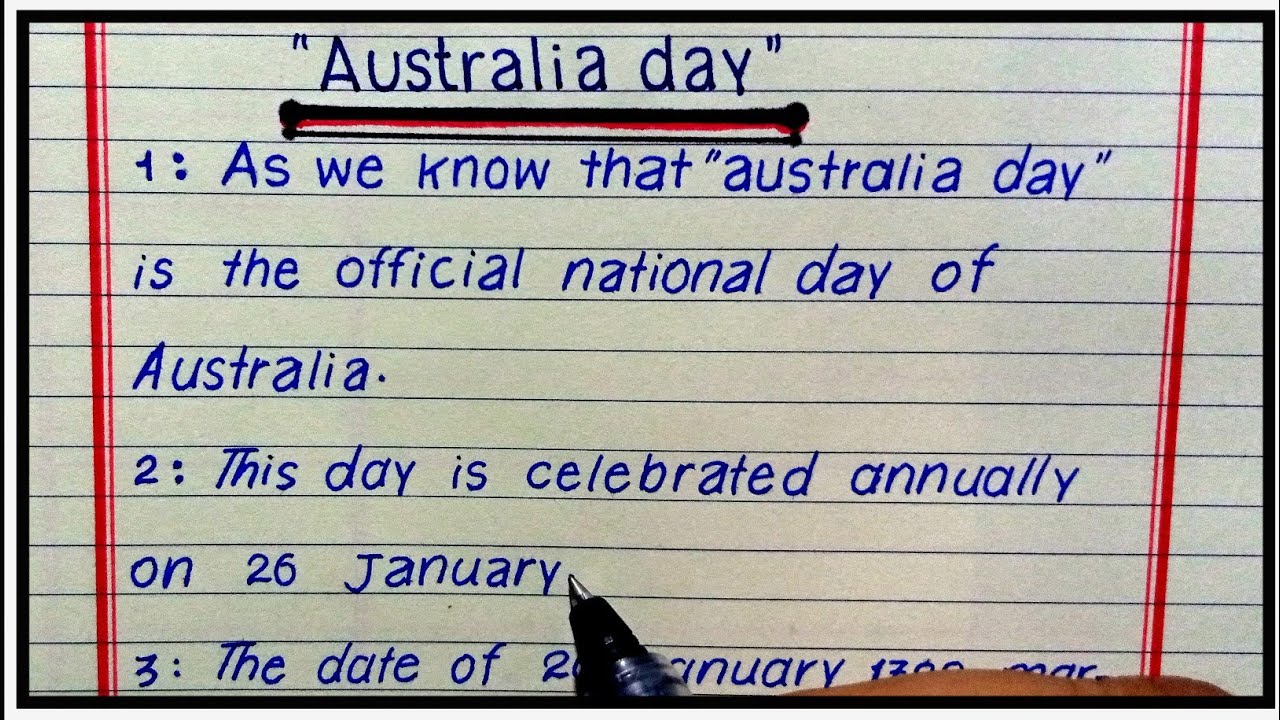 "Australia day"
1: As we know that "australia day"
is the official national day of
Australia.
2: This day is celebrated annually
on 26 January
3: The date of